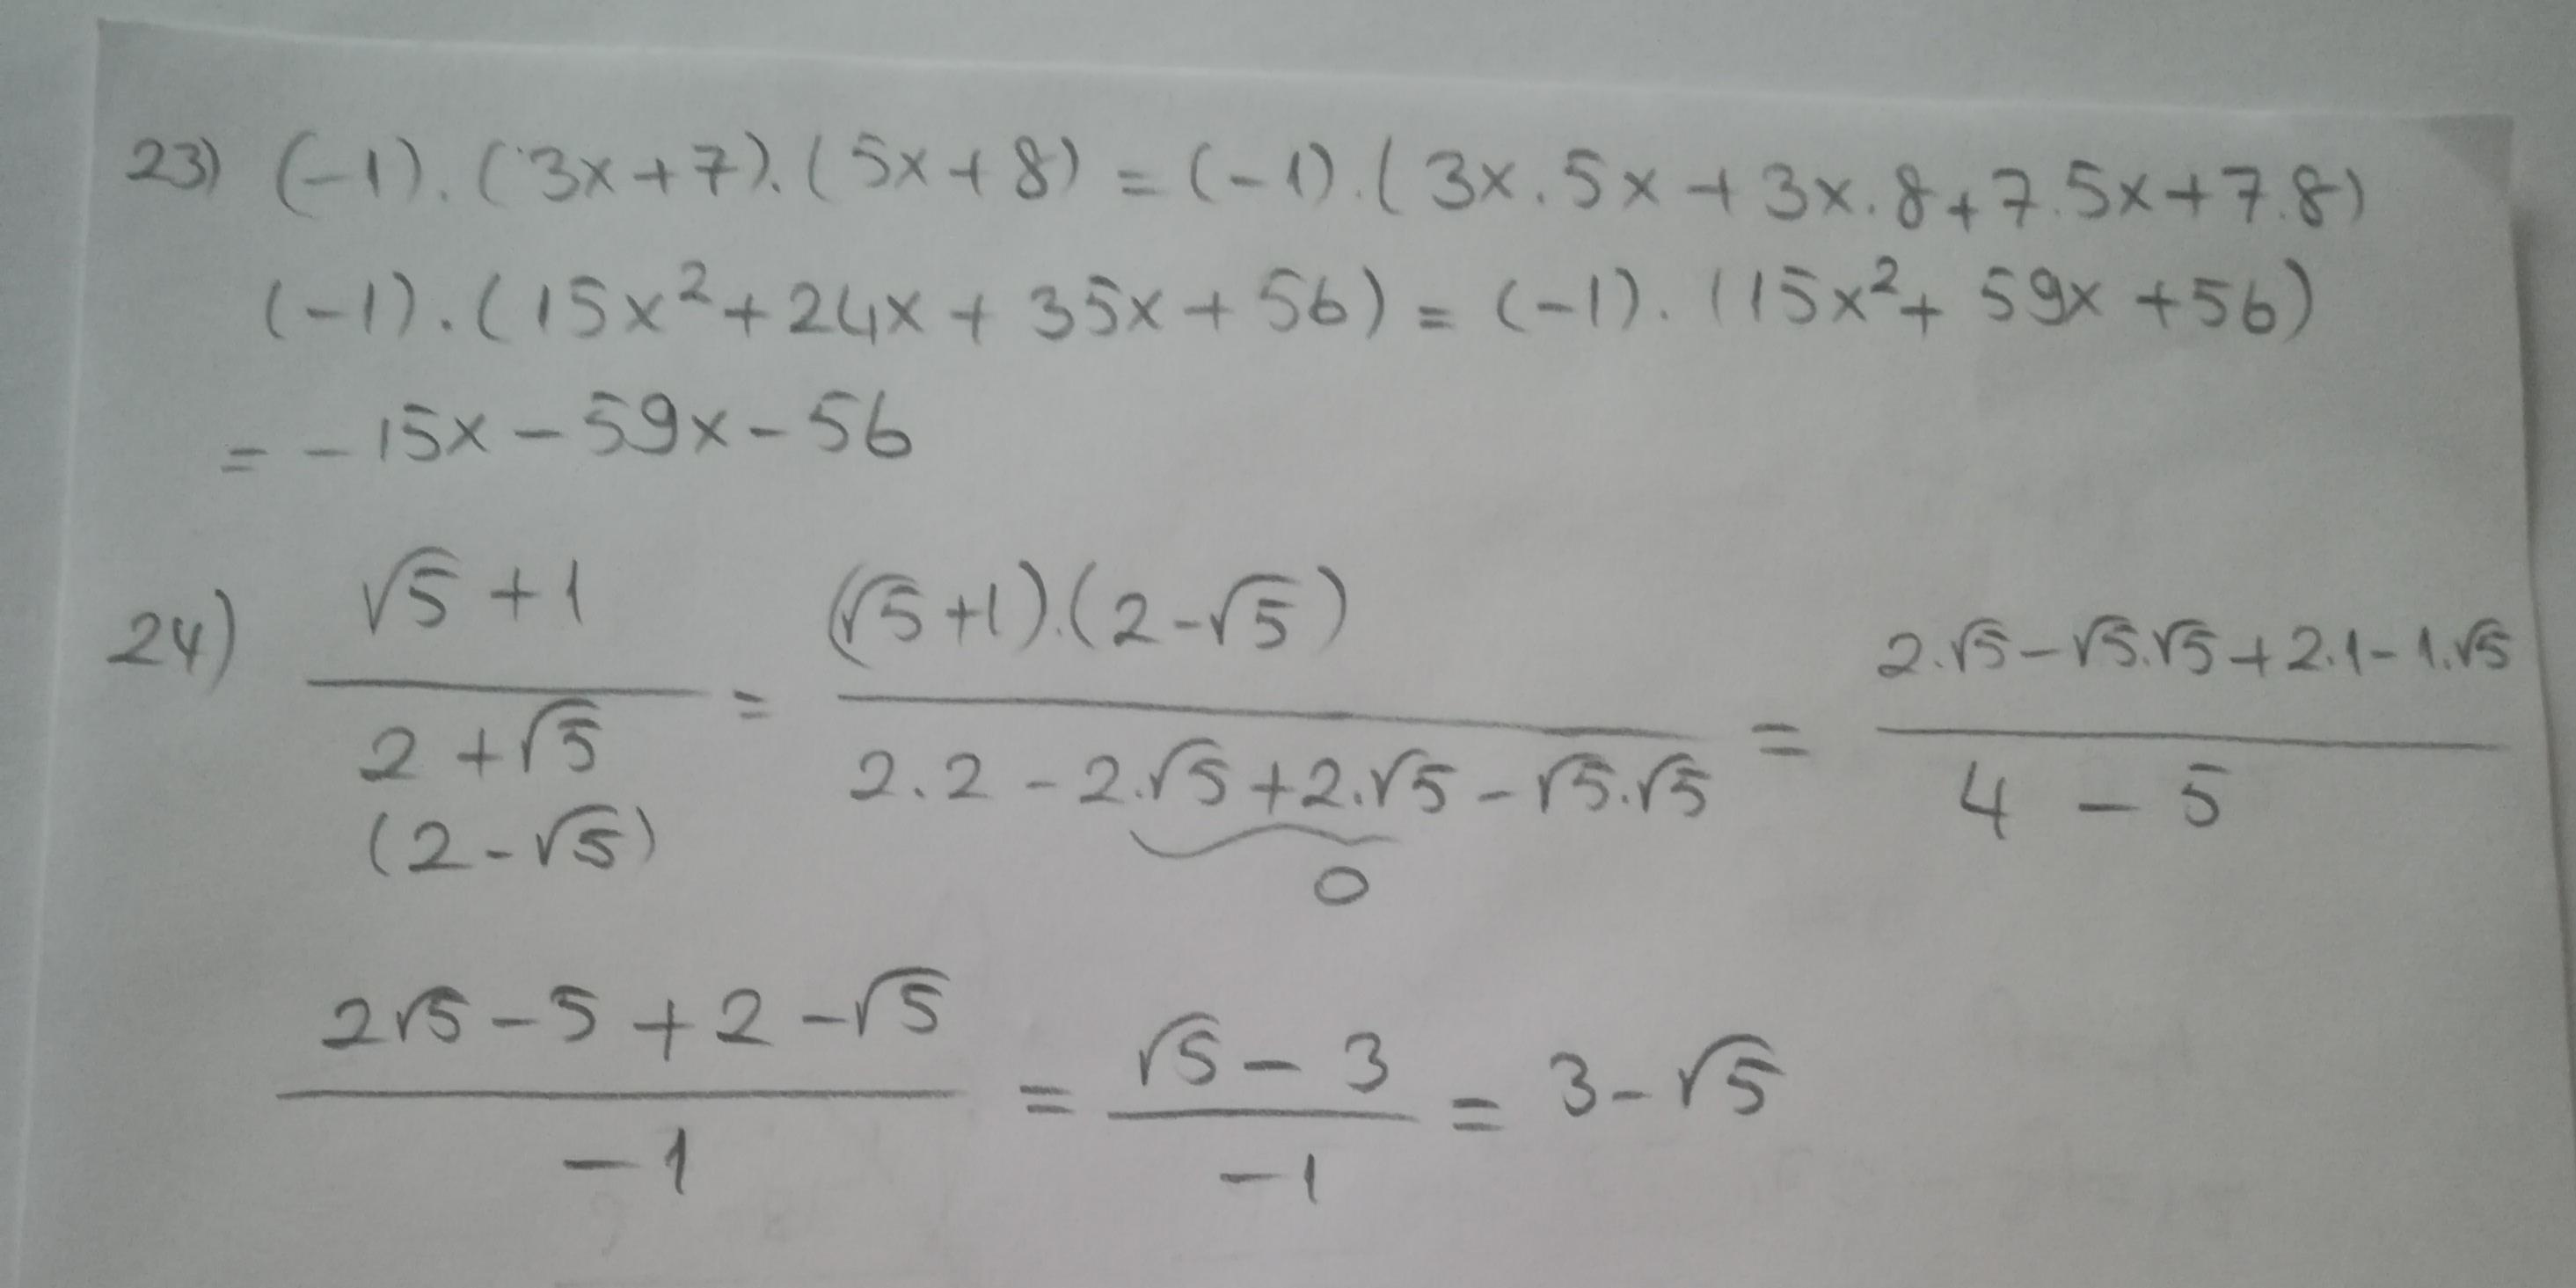 23) (-1).(3x+7).(5x+8) = (-1).(3x.5x+3x.8+7.5x+7.8)
(-1).(15x²+24x+35x+56) = (-1).(15x²+59x+56)
= -15x-59x-56
24) (√5+1)/(2+√5) = ((√5+1).(2-√5))/(2.2-2.√5+2.√5-√5.√5) = (2.√5-√5.√5+2.1-1.√5)/(4-5)
(2-√5)
0
(2√5-5+2-√5)/(-1) = (√5-3)/(-1) = 3-√5